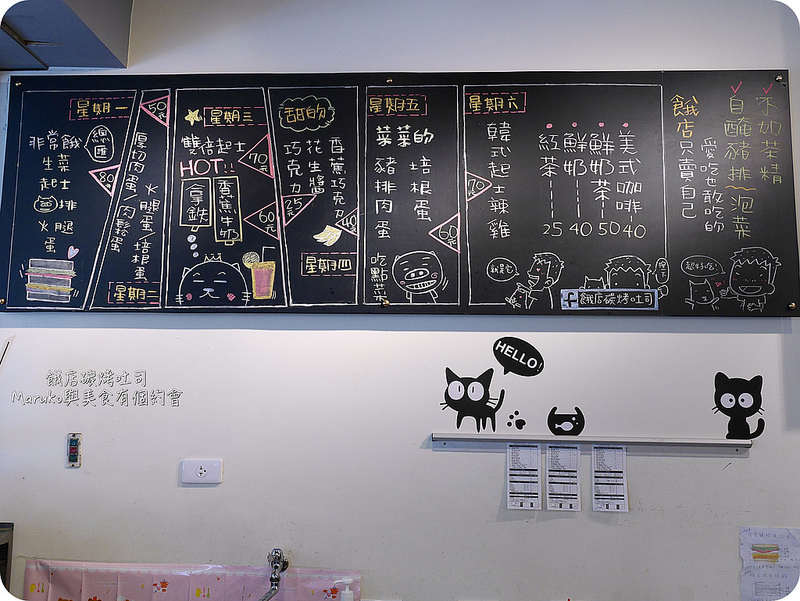 星期一
非常餓
總匯
生菜
起士
排
火腿
蛋
80元
50元
厚切肉蛋/肉鬆蛋
火腿蛋/培根蛋
星期二
星期三
雙倍起士
HOT!!
70元
拿鐵
香蕉牛奶
60元
甜的
香蕉巧克力
花生醬
巧克力
25元
40元
星期四
星期五
菜菜的
豬排肉蛋
培根蛋
60元
吃點菜
星期六
韓式起士辣雞
70元
美式咖啡---40
鮮奶茶---50
鮮奶---40
紅茶---25
餓店碳烤吐司
不加茶精
自醃豬排~泡菜
愛吃也敢吃的
餓店只賣自己
HELLO!
餓店碳烤吐司
Maruko與美食有個約會